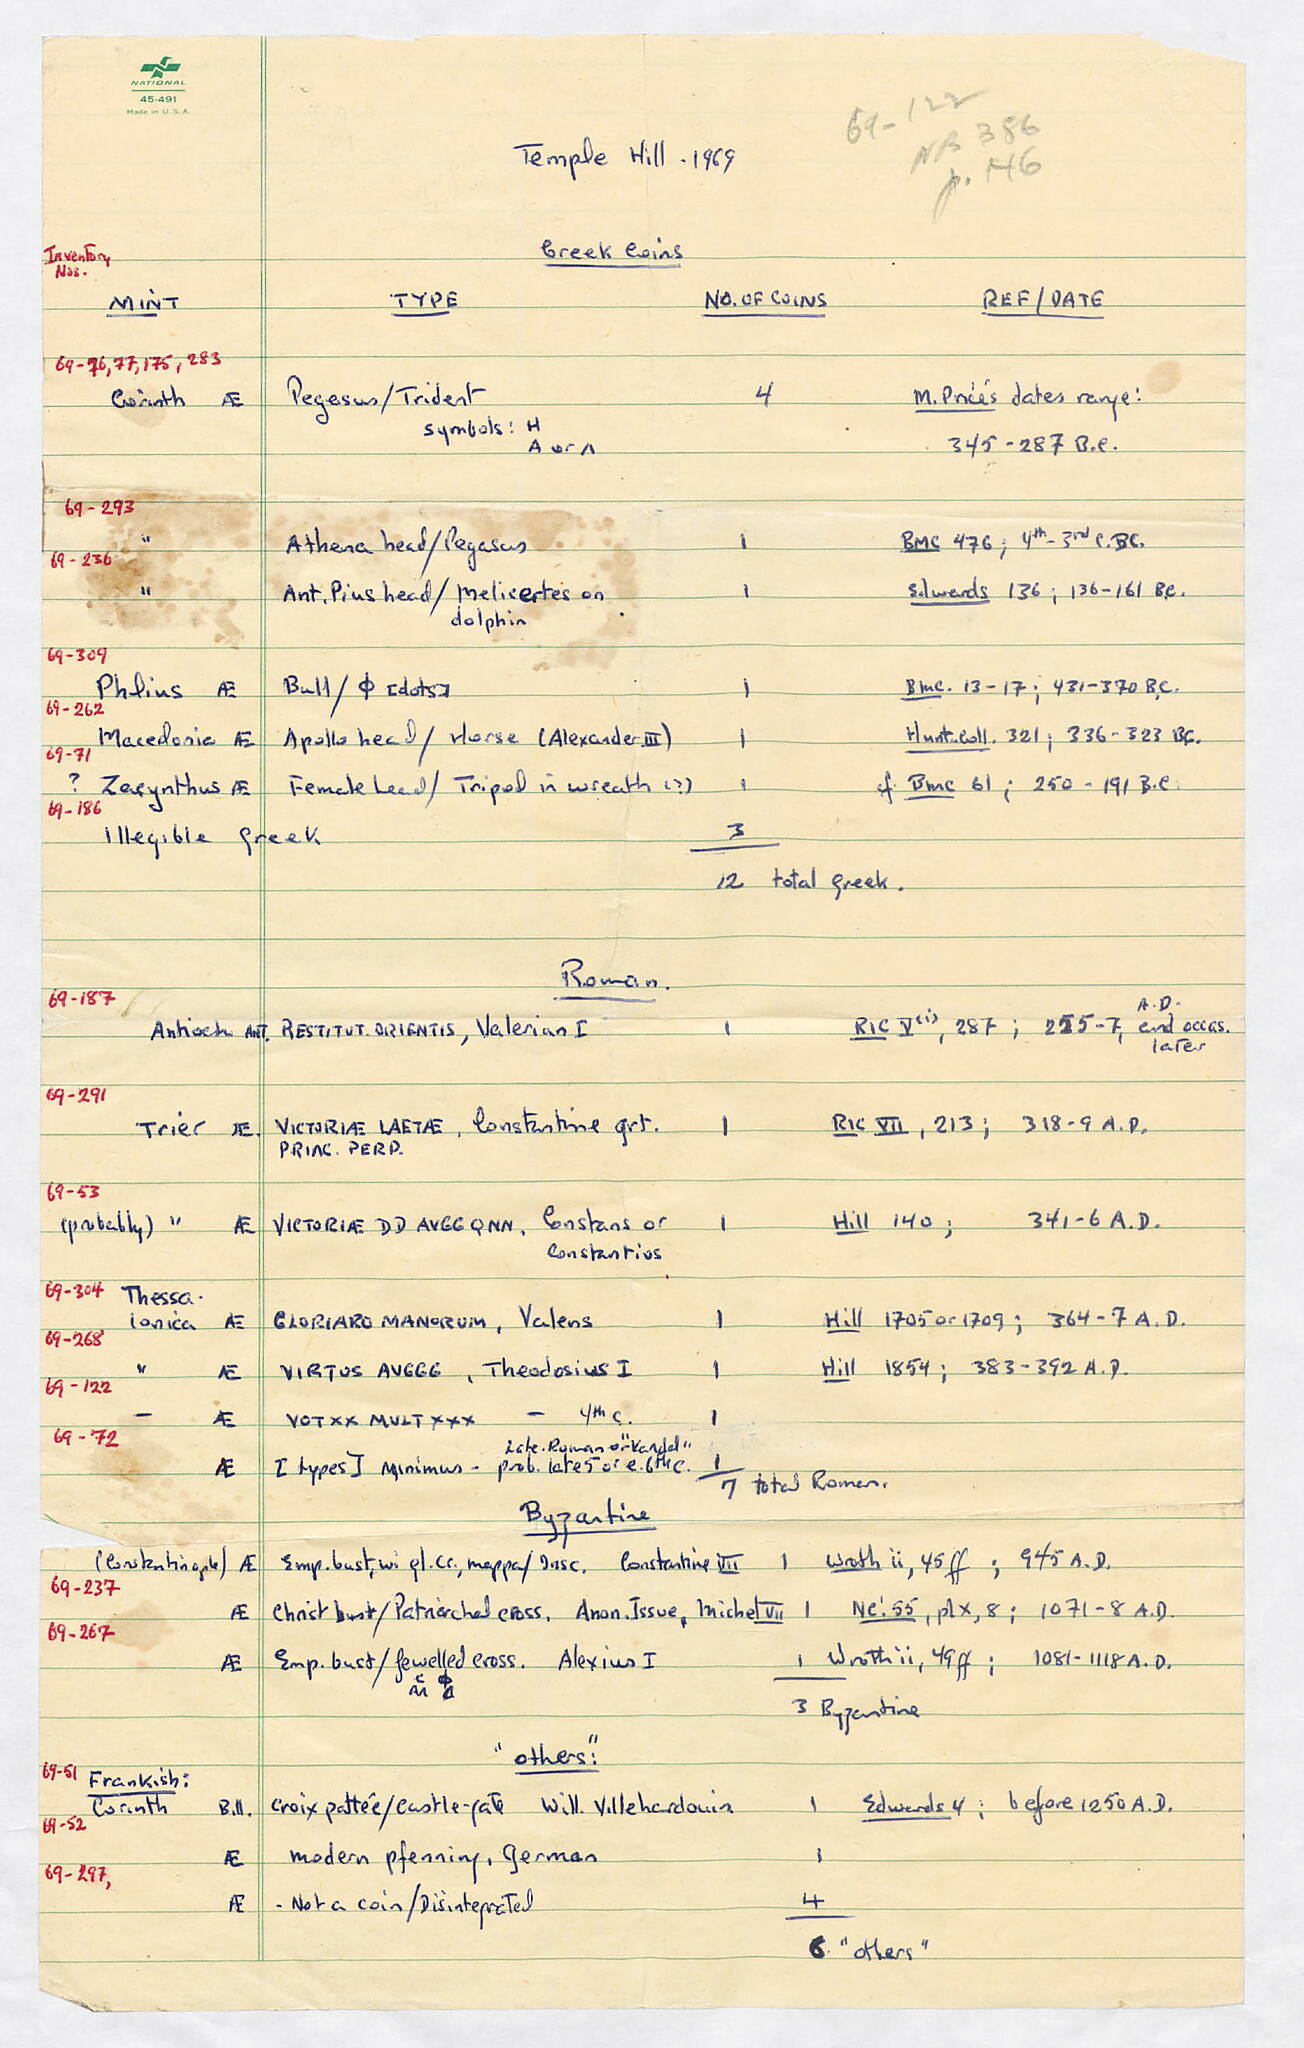 NATIONAL
45-491
Made in U.S.A.
69-122
NB 386
p. 146
Temple Hill - 1969
Inventory
Nos.
Greek Coins
MINT TYPE NO. OF COINS REF/DATE
69-76, 77, 175, 283
Corinth Æ Pegasus/Trident 4 M. Price's dates range:
symbols: H
A or Λ 345-287 B.C.
69-293
" Athena head/Pegasus 1 BMC 476; 4th-3rd c. BC.
69-236
" Ant. Pius head/Melicertes on 1 Edwards 136; 136-161 BC.
dolphin
69-309
Phlius Æ Bull/Φ [dots] 1 BMC. 13-17; 431-370 B.C.
69-262
Macedonia Æ Apollo head/Horse (Alexander III) 1 Hunt. Coll. 321; 336-323 BC.
69-71
? Zacynthus Æ Female head/Tripod in wreath (?) 1 cf. BMC 61; 250-191 B.C.
69-186
Illegible Greek 3
12 total Greek.
Roman.
69-187
A.D.
Antioch ANT. RESTITUT. ORIENTIS, Valerian I 1 RIC V(i), 287; 255-7, and occas.
later
69-291
Trier Æ. VICTORIÆ LAETÆ, Constantine grt. 1 RIC VII, 213; 318-9 A.D.
PRINC. PERP.
69-53
(probably) " Æ VICTORIÆ DD AVGGQNN, Constans or 1 Hill 140; 341-6 A.D.
Constantius
69-304 Thessa-
lonica Æ GLORIARO MANORUM, Valens 1 Hill 1705 or 1709; 364-7 A.D.
69-268
" Æ VIRTUS AVGGG, Theodosius I 1 Hill 1854; 383-392 A.D.
69-122
- Æ VOT XX MULT XXX - 4th c. 1
69-72
Late Roman or "Vandal"
Æ [types] Minimus - prob. late 5 or e. 6th c. 1
7 total Roman.
Byzantine
(Constantinople) Æ Emp. bust, wi gl. cr., mappa/Insc. Constantine VII 1 Wroth ii, 45 ff; 945 A.D.
69-237
Æ Christ bust/Patriarchal cross. Anon. Issue, Michel VII 1 NC. '55, pl x, 8; 1071-8 A.D.
69-267
Æ Emp. bust/Jewelled cross. Alexius I 1 Wroth ii, 49 ff; 1081-1118 A.D.
C Φ
M Δ
3 Byzantine
"others":
69-51
Frankish:
Corinth Bill. Croix pattée/Castle-gate Will. Villehardouin 1 Edwards 4; before 1250 A.D.
69-52
Æ modern pfenning, German 1
69-297,
Æ - Not a coin/Disintegrated 4
6. "others"